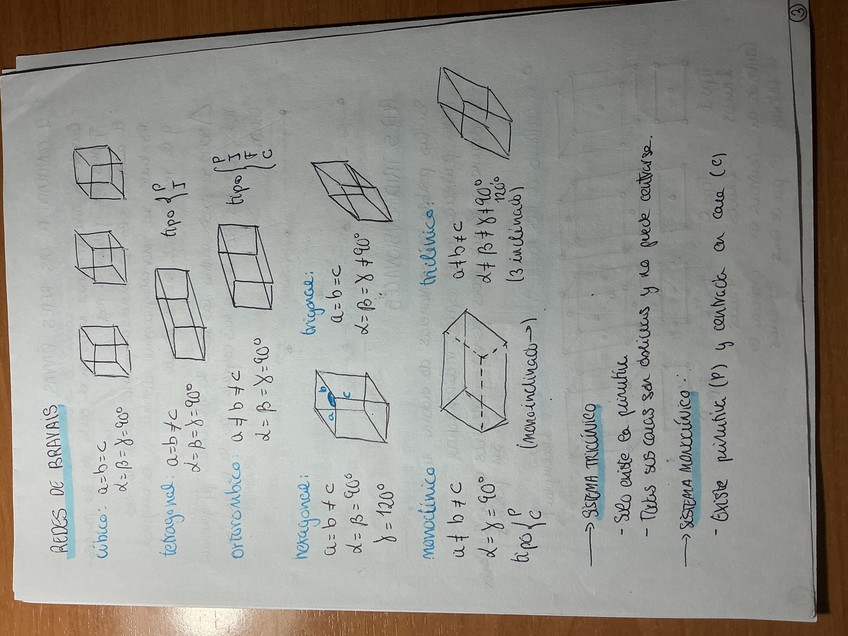 REDES DE BRAVAIS
cúbico: a=b=c
α=β=γ=90°
tetragonal: a=b≠c
α=β=γ=90°
tipo { P
I
ortorrómbico: a≠b≠c
α=β=γ=90°
tipo { P
I
F
C
hexagonal:
a=b≠c
α=β=90°
γ=120°
a b
c
trigonal:
a=b=c
α=β=γ≠90°
monoclínico
a≠b≠c
α=γ=90°
tipo { P
C
(monoinclinado→)
triclínico:
a≠b≠c
α≠β≠γ≠90°
120°
(3 inclinado)
→ SISTEMA TRICLÍNICO
- Solo existe la primitiva
- Todas sus caras son oblicuas y no puede centrarse.
→ SISTEMA MONOCLÍNICO:
- Existe primitiva (P) y centrada en cara (C)
3